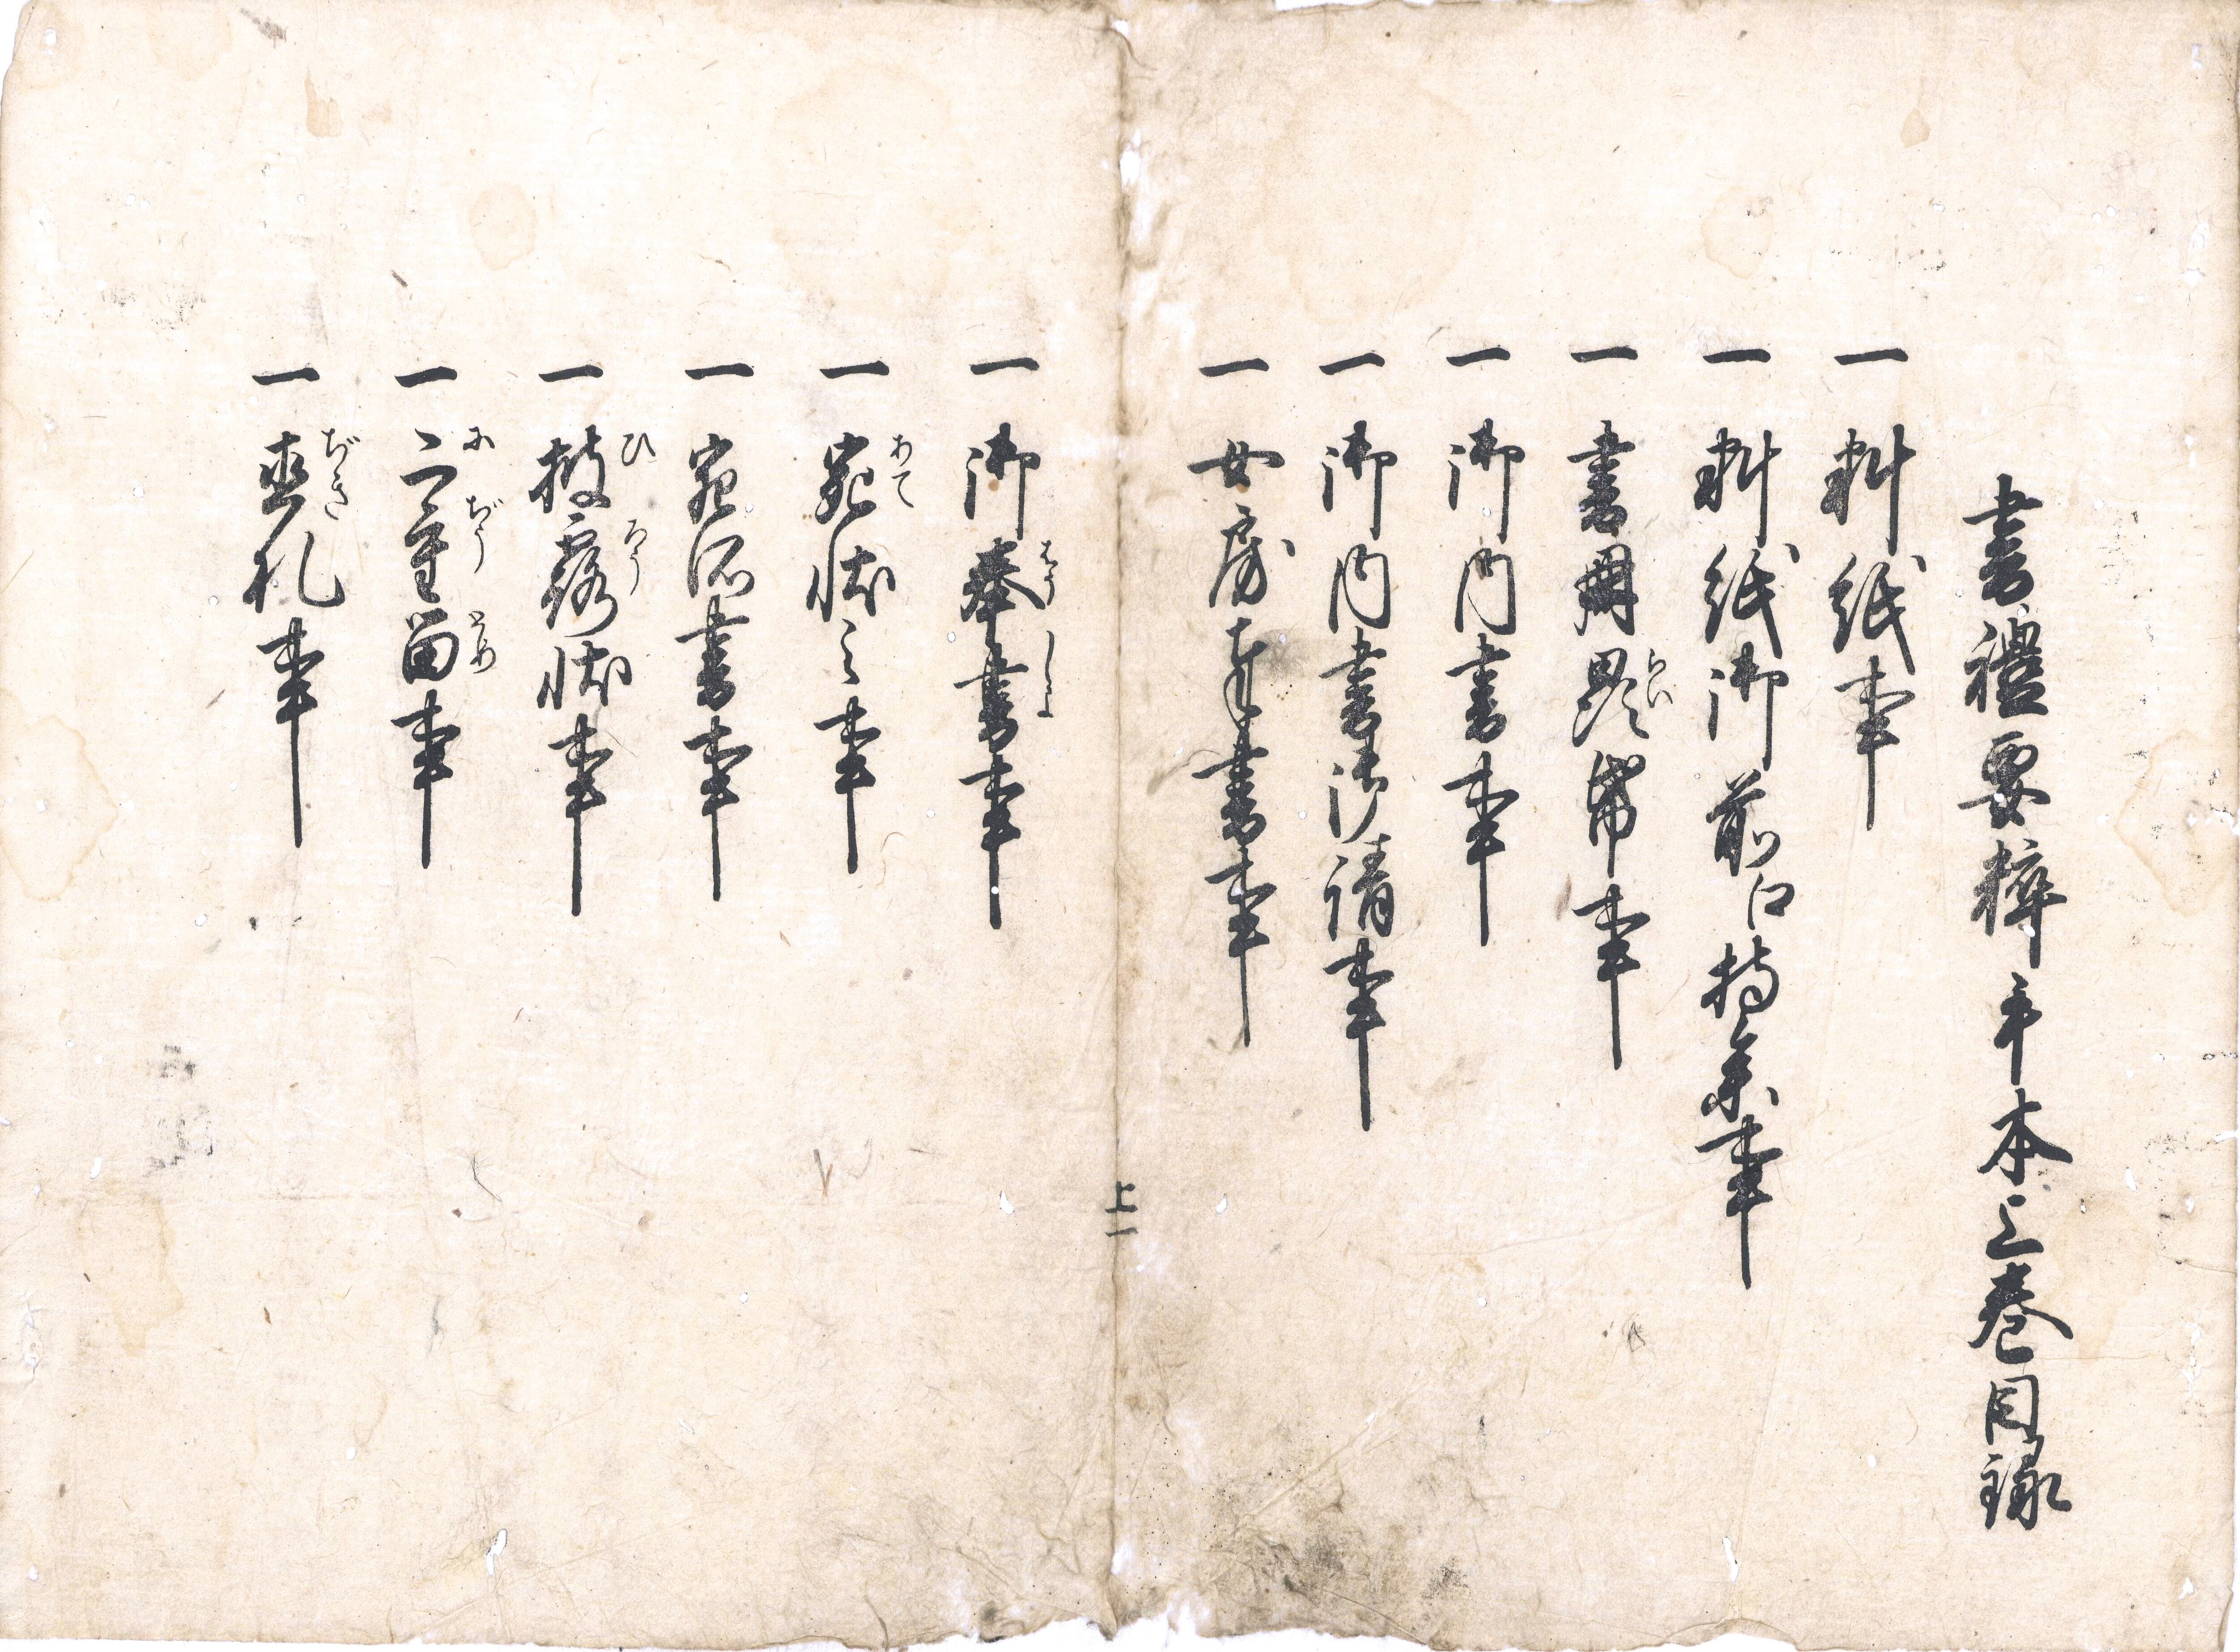 書禮要粹手本之巻目録
一 料紙事
一 料紙御前江持参事
一 書冊罫帋事
一 御内書事
一 御内書御請事
一 女房奉書事
上一
一 御奉書事
一 宛状之事
一 宛所書事
一 披露状事
一 二重留事
一 直札事